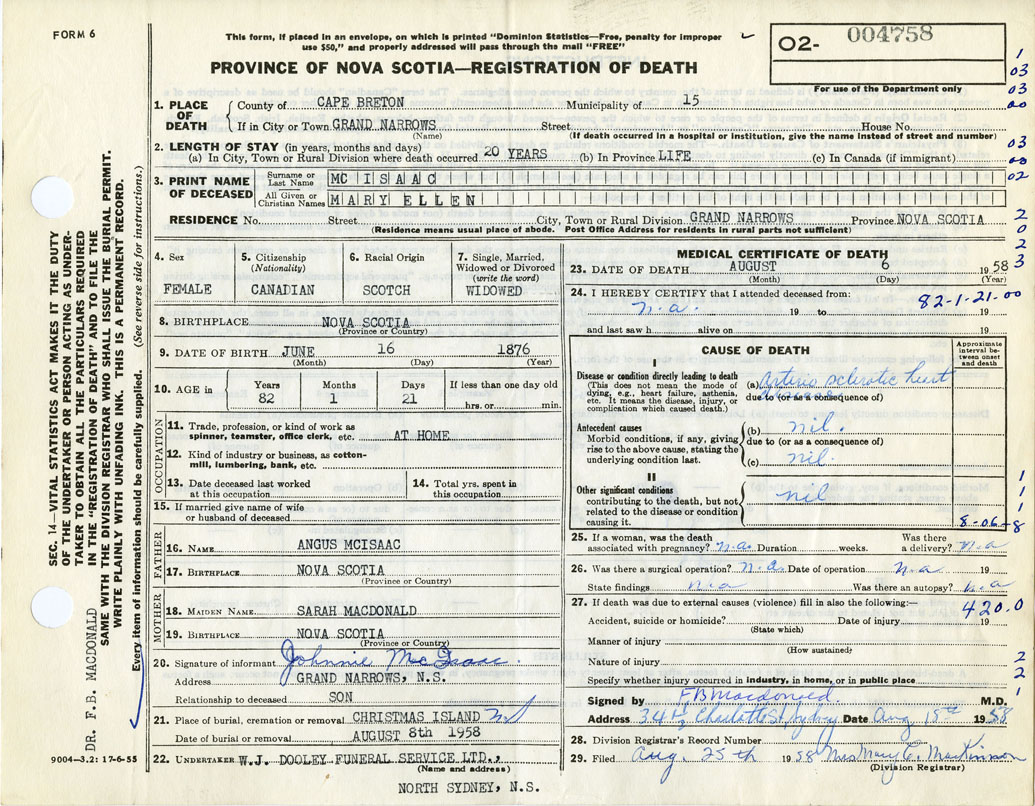 FORM 6
This form, if placed in an envelope, on which is printed "Dominion Statistics—Free, penalty for improper
use $50," and properly addressed will pass through the mail "FREE"
PROVINCE OF NOVA SCOTIA—REGISTRATION OF DEATH
02- 004758
For use of the Department only
1. PLACE OF DEATH County of CAPE BRETON Municipality of 15
If in City or Town GRAND NARROWS Street House No.
(Name) (If death occurred in a hospital or institution, give the name instead of street and number)
2. LENGTH OF STAY (in years, months and days)
(a) In City, Town or Rural Division where death occurred 20 YEARS (b) In Province LIFE (c) In Canada (if immigrant)
3. PRINT NAME OF DECEASED
Surname or Last Name MC ISAAC
All Given or Christian Names MARY ELLEN
RESIDENCE No. Street City, Town or Rural Division GRAND NARROWS Province NOVA SCOTIA
(Residence means usual place of abode. Post Office Address for residents in rural parts not sufficient)
1
03
03
00
03
00
02
2
0
2
3
4. Sex
FEMALE
5. Citizenship
(Nationality)
CANADIAN
6. Racial Origin
SCOTCH
7. Single, Married,
Widowed or Divorced
(write the word)
WIDOWED
8. BIRTHPLACE NOVA SCOTIA
(Province or Country)
9. DATE OF BIRTH JUNE 16 1876
(Month) (Day) (Year)
10. AGE in Years Months Days If less than one day old
82 1 21 hrs. or min.
OCCUPATION
11. Trade, profession, or kind of work as
spinner, teamster, office clerk, etc. AT HOME
12. Kind of industry or business, as cotton-
mill, lumbering, bank, etc.
13. Date deceased last worked
at this occupation
14. Total yrs. spent in
this occupation
15. If married give name of wife
or husband of deceased
FATHER
16. NAME ANGUS MCISAAC
17. BIRTHPLACE NOVA SCOTIA
(Province or Country)
MOTHER
18. MAIDEN NAME SARAH MACDONALD
19. BIRTHPLACE NOVA SCOTIA
(Province or Country)
20. Signature of informant Johnnie McIsaac
Address GRAND NARROWS, N.S.
Relationship to deceased SON
21. Place of burial, cremation or removal CHRISTMAS ISLAND
Date of burial or removal AUGUST 8th 1958
22. UNDERTAKER W.J. DOOLEY FUNERAL SERVICE LTD.,
(Name and address)
NORTH SYDNEY, N.S.
MEDICAL CERTIFICATE OF DEATH
23. DATE OF DEATH AUGUST 6 1958
(Month) (Day) (Year)
24. I HEREBY CERTIFY that I attended deceased from: 82-1-21-00
n.a. 19 to 19
and last saw h alive on 19
CAUSE OF DEATH
Approximate interval between onset and death
I
Disease or condition directly leading to death
(This does not mean the mode of
dying, e.g., heart failure, asthenia,
etc. It means the disease, injury, or
complication which caused death.)
(a) arterio sclerotic heart
due to (or as a consequence of)
disease
Antecedent causes
Morbid conditions, if any, giving
rise to the above cause, stating the
underlying condition last.
(b) nil.
due to (or as a consequence of)
(c) nil.
II
Other significant conditions
contributing to the death, but not
related to the disease or condition
causing it.
nil
8-06-8
1
1
1
25. If a woman, was the death
associated with pregnancy? n.a. Duration weeks. Was there
a delivery? n.a
26. Was there a surgical operation? n.a. Date of operation n.a 19
State findings n.a Was there an autopsy? n.a
27. If death was due to external causes (violence) fill in also the following:— 420.0
Accident, suicide or homicide? Date of injury 19
(State which)
Manner of injury
(How sustained)
Nature of injury
Specify whether injury occurred in industry, in home, or in public place
2
2
1
Signed by F B Macdonald. M.D.
Address 341½ Charlotte St, Sydney Date Aug 15th 1958
28. Division Registrar's Record Number
29. Filed Aug. 25th 1958 Mrs Mary C. MacKinnon
(Division Registrar)
SEC. 14—VITAL STATISTICS ACT MAKES IT THE DUTY
OF THE UNDERTAKER OR PERSON ACTING AS UNDER-
TAKER TO OBTAIN ALL THE PARTICULARS REQUIRED
IN THE "REGISTRATION OF DEATH" AND TO FILE THE
SAME WITH THE DIVISION REGISTRAR WHO SHALL ISSUE THE BURIAL PERMIT.
WRITE PLAINLY WITH UNFADING INK. THIS IS A PERMANENT RECORD.
Every item of information should be carefully supplied. (See reverse side for instructions.)
DR. F.B. MACDONALD
9004—3.2: 17-6-55